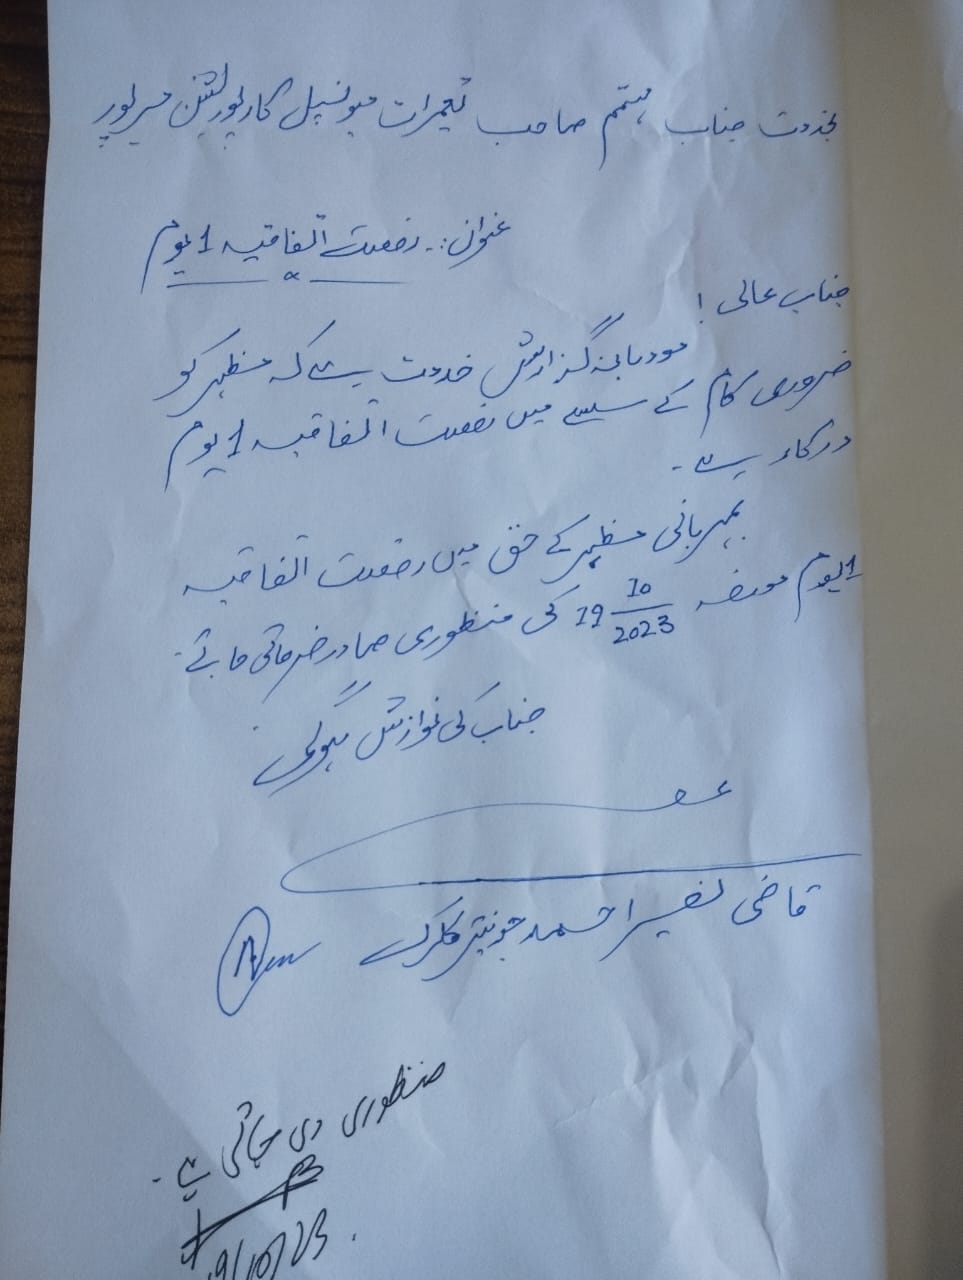 بخدمت جناب مہتمم صاحب تعمیرات میونسپل کارپوریشن میرپور
عنوان:۔ رخصت اتفاقیہ 1 یوم
جناب عالی !
مودبانہ گزارش خدمت ہے کہ مظہر کو
ضروری کام کے سلسلے میں رخصت اتفاقیہ 1 یوم
درکار ہے۔
بمہربانی مظہر کے حق میں رخصت اتفاقیہ
1 یوم مورخہ 19 10/2023 کی منظوری صادر فرمائی جائے۔
جناب کی نوازش ہوگی۔
قاضی نصیر احمد جونیئر کلرک
منظوری دی جاتی ہے۔
19/10/23